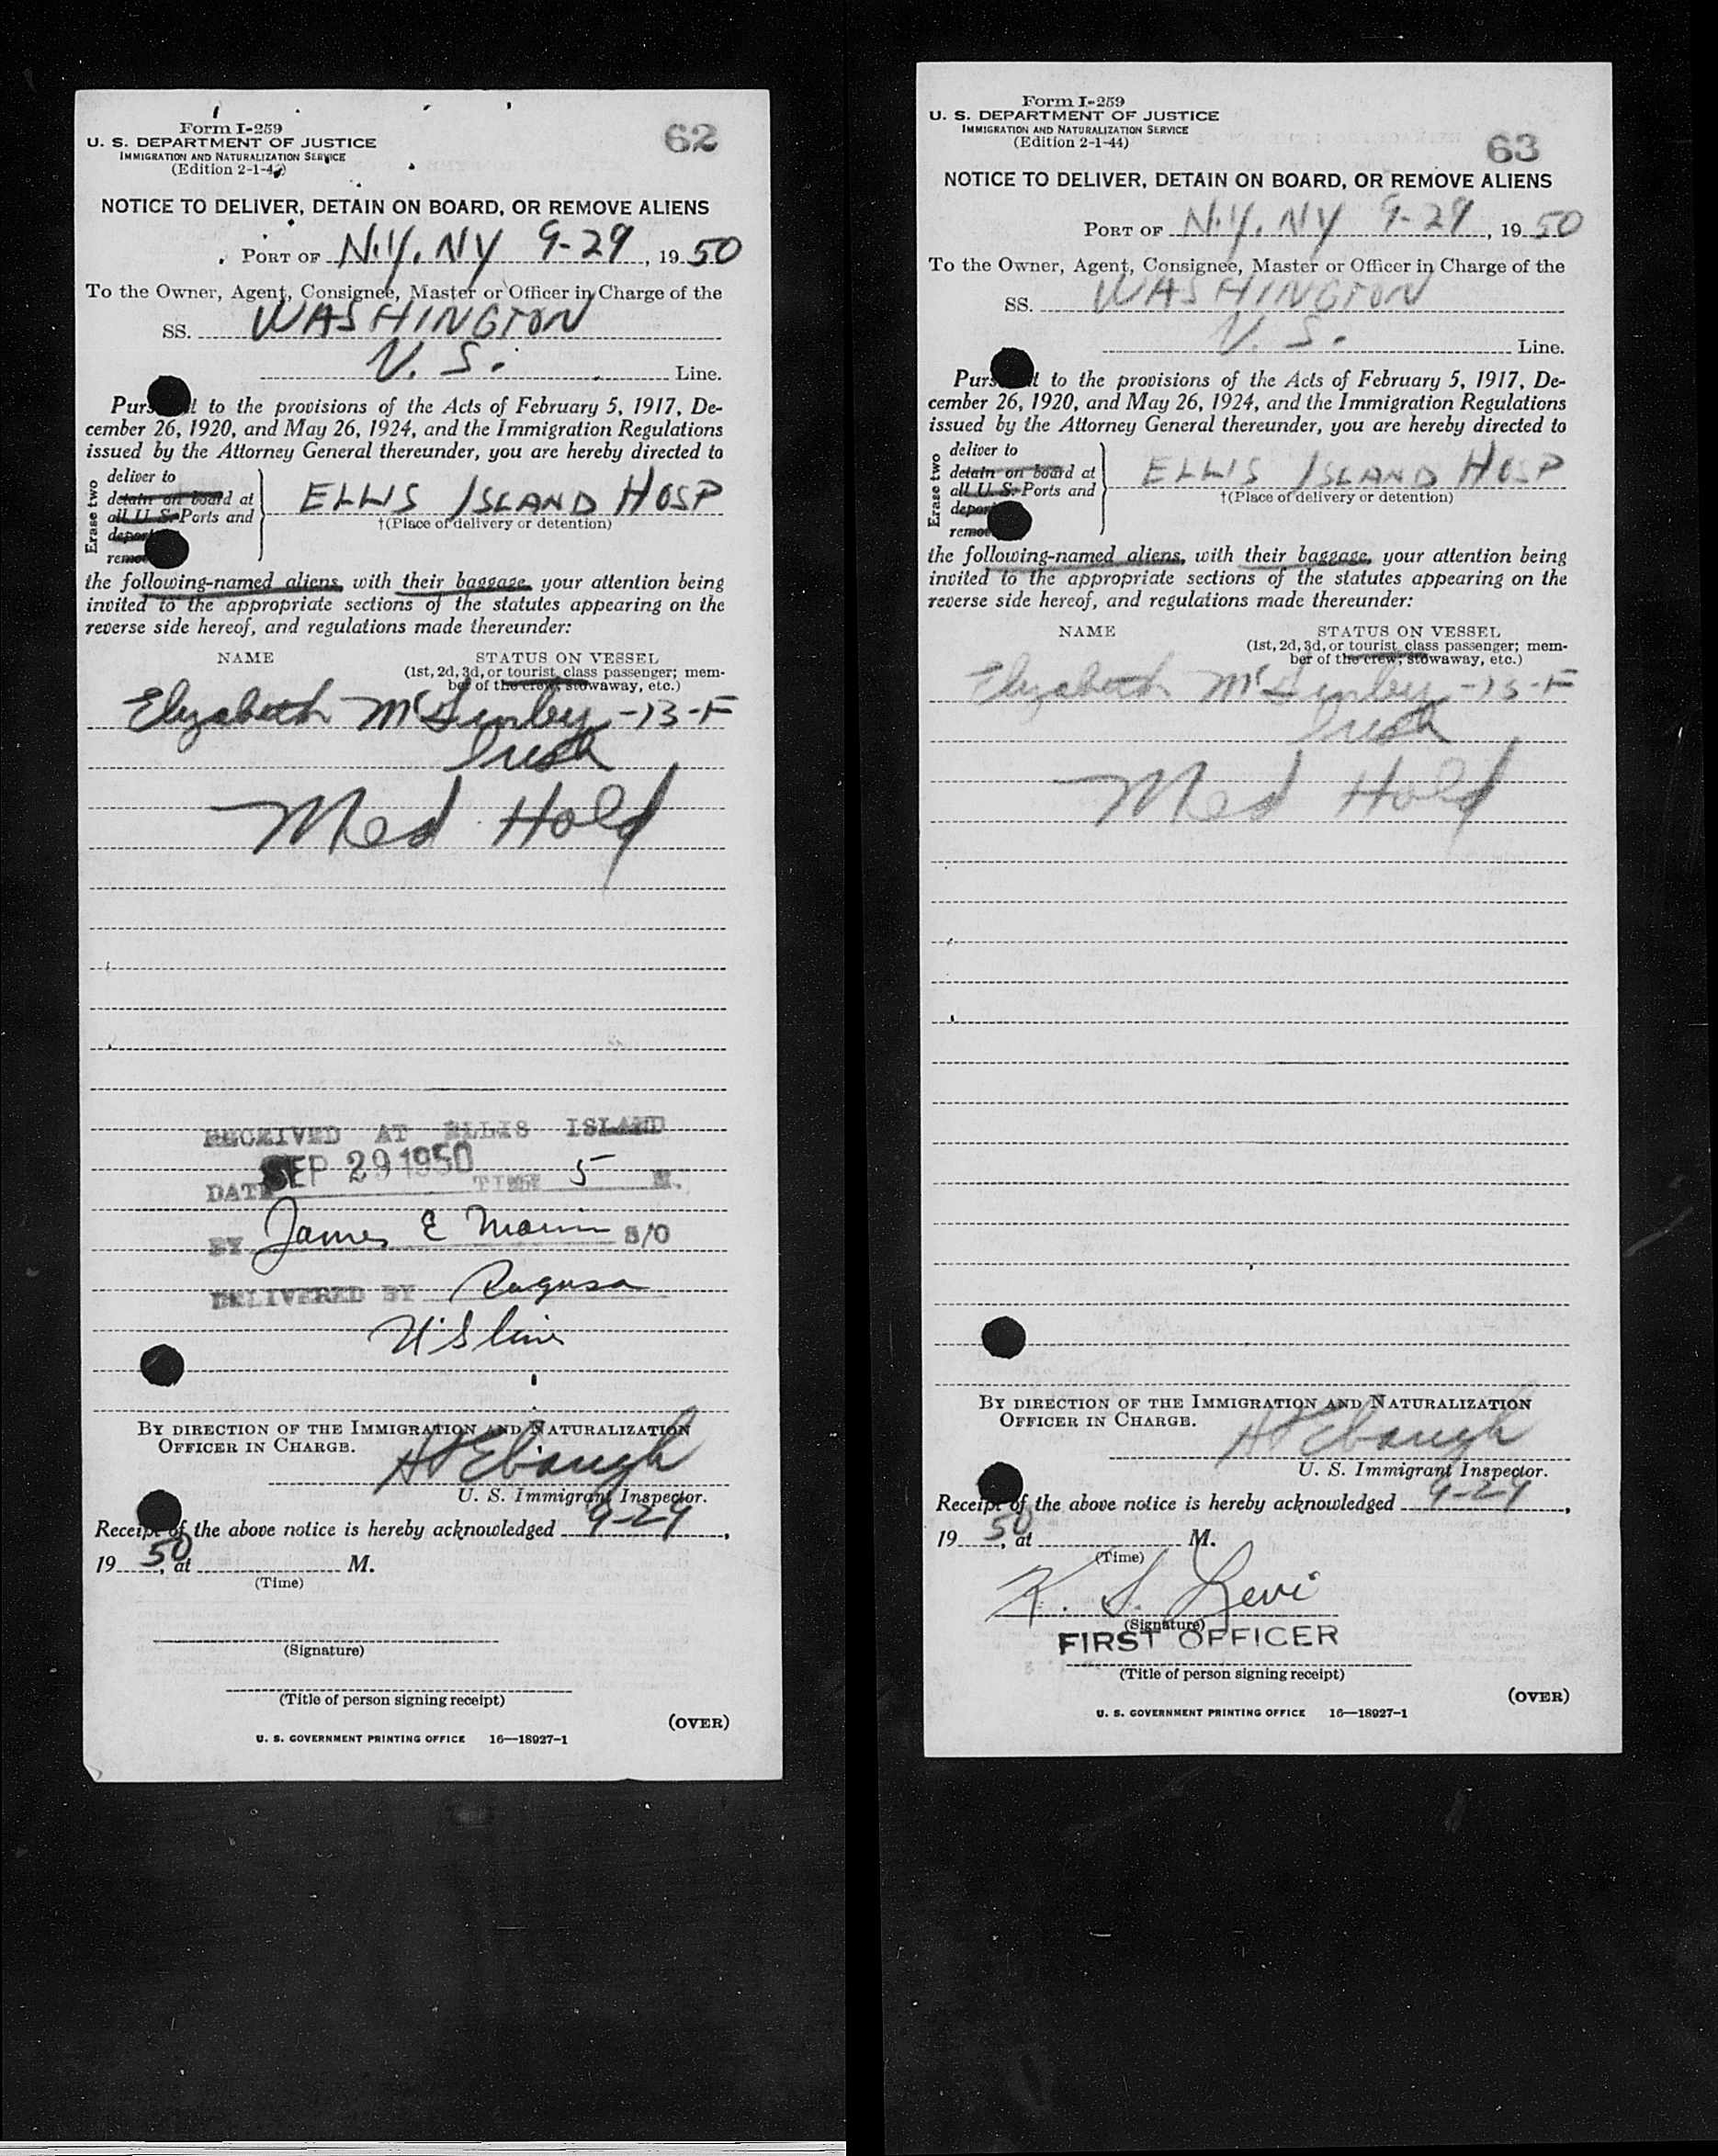 Form I-259
U. S. DEPARTMENT OF JUSTICE
IMMIGRATION AND NATURALIZATION SERVICE
(Edition 2-1-4
62
NOTICE TO DELIVER, DETAIN ON BOARD, OR REMOVE ALIENS
PORT OF N.Y. NY 9-29, 19 50
To the Owner, Agent, Consignee, Master or Officer in Charge of the
SS. WASHINGTON
U. S. Line.
to the provisions of the Acts of February 5, 1917, De-
cember 26, 1920, and May 26, 1924, and the Immigration Regulations
issued by the Attorney General thereunder, you are hereby directed to
Erase two
deliver to
detain on board at
all U. S. Ports and
ELLIS ISLAND HOSP
†(Place of delivery or detention)
the following-named aliens, with their baggage, your attention being
invited to the appropriate sections of the statutes appearing on the
reverse side hereof, and regulations made thereunder:
NAME STATUS ON VESSEL
(1st, 2d, 3d, or tourist class passenger; mem-
ber of the crew; stowaway, etc.)
Elizabeth -13-F
Irish
Med Hold
RECEIVED AT ELLIS ISLAND
DATE SEP 29 1950 TIME 5 M.
BY James E S/O
DELIVERED BY Ragusa
U S Line
BY DIRECTION OF THE IMMIGRATION AND NATURALIZATION
OFFICER IN CHARGE.
Ebaugh
U. S. Immigrant Inspector.
Receipt of the above notice is hereby acknowledged 9-29,
19 50, at M.
(Time)
(Signature)
(Title of person signing receipt)
(OVER)
U. S. GOVERNMENT PRINTING OFFICE 16—18927-1
Form I-259
U. S. DEPARTMENT OF JUSTICE
IMMIGRATION AND NATURALIZATION SERVICE
(Edition 2-1-44)
63
NOTICE TO DELIVER, DETAIN ON BOARD, OR REMOVE ALIENS
PORT OF N.Y. NY 9-29, 19 50
To the Owner, Agent, Consignee, Master or Officer in Charge of the
SS. WASHINGTON
U. S. Line.
to the provisions of the Acts of February 5, 1917, De-
cember 26, 1920, and May 26, 1924, and the Immigration Regulations
issued by the Attorney General thereunder, you are hereby directed to
Erase two
deliver to
detain on board at
all U. S. Ports and
ELLIS ISLAND HOSP
†(Place of delivery or detention)
the following-named aliens, with their baggage, your attention being
invited to the appropriate sections of the statutes appearing on the
reverse side hereof, and regulations made thereunder:
NAME STATUS ON VESSEL
(1st, 2d, 3d, or tourist class passenger; mem-
ber of the crew; stowaway, etc.)
Elizabeth -13-F
Irish
Med Hold
BY DIRECTION OF THE IMMIGRATION AND NATURALIZATION
OFFICER IN CHARGE.
Ebaugh
U. S. Immigrant Inspector.
Receipt of the above notice is hereby acknowledged 9-29,
19 50, at M.
(Time)
K. S. Levi
(Signature)
FIRST OFFICER
(Title of person signing receipt)
(OVER)
U. S. GOVERNMENT PRINTING OFFICE 16—18927-1